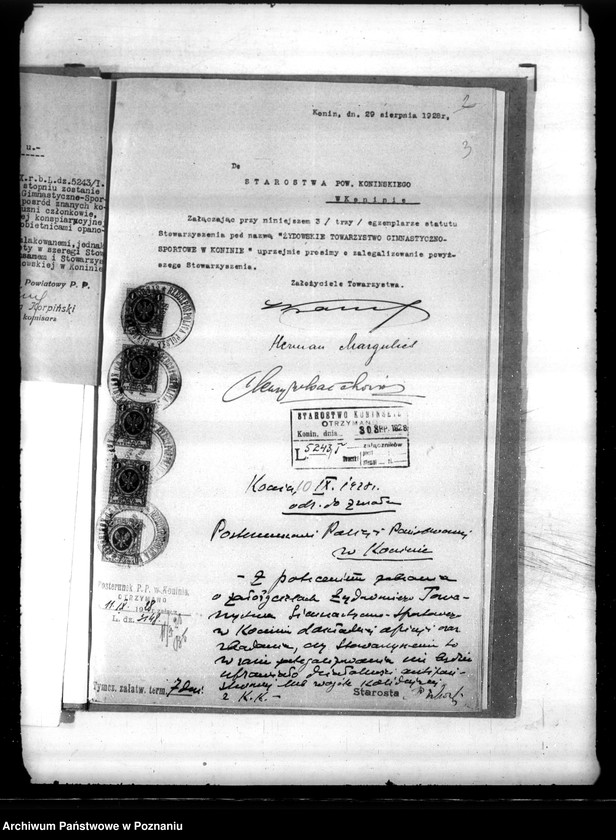 2
3
Konin, dn. 29 sierpnia 1928r.
Do
STAROSTWA POW. KONINSKIEGO
w Koninie
Załączając przy niniejszem 3 / trzy / egzemplarze statutu
Stowarzyszenia pod nazwą "ŻYDOWSKIE TOWARZYSTWO GIMNASTYCZNO-
SPORTOWE W KONINIE" uprzejmie prosimy o zalegalizowanie powyż-
szego Stowarzyszenia.
Założyciele Towarzystwa.
Herman Margulies
u.-
K.r.b.L.dz.5243/I.
stopniu zostanie
Gimnastyczno-Spor-
pośród znanych ko-
członkowie,
ej konspiracyjnej
obietnicami opano-
lakowanemi, jednak
ty w szeregi Stow
i Stowarzys
w Koninie
Powiatowy P. P.
Korpiński
komisarz
STAROSTWO KONINSKIE
OTRZYMANO
Konin, dnia 30 SIERP. 1928
L. 5243/I
załączników
Konin 10 IX. 1928r.
odr. do zwrotu
Posterunkowi Policji Państwowej
w Koninie
- Z poleceniem zebrania
o założycielach Żydowskiego Towa-
rzystwa Gimnastyczno-Sportowego
w Koninie dokładnej opinji oraz
zbadania, czy Stowarzyszenie to
w razie zalegalizowania nie będzie
uprawiało działalności antypań-
stwowej lub
z K.K. -
Starosta
Posterunek P. P. w Koninie
OTRZYMANO
11 IX 1928
L. dz.
Tymcz. załatw. term. 7 dni
Archiwum Państwowe w Poznaniu